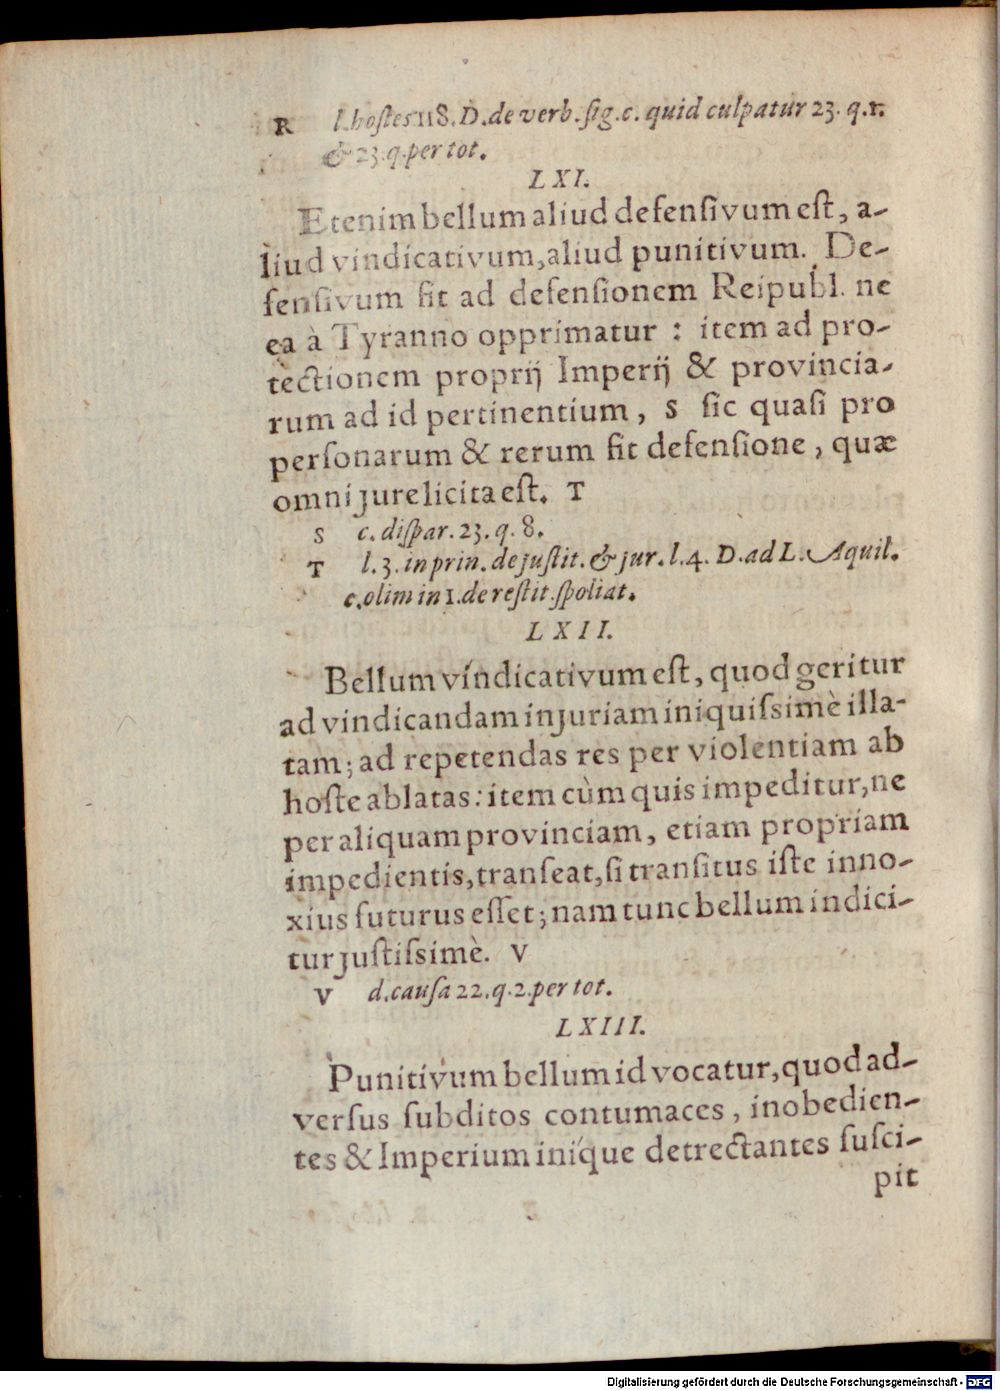 R l. hostes 118. D. de verb. sig. c. quid culpatur 23. q. 1.
& 23. q. per tot.
LXI.
Etenim bellum aliud defensivum est, a-
liud vindicativum, aliud punitivum. De-
fensivum fit ad defensionem Reipubl. ne
ea à Tyranno opprimatur : item ad pro-
tectionem proprij Imperij & provincia-
rum ad id pertinentium, S sic quasi pro
personarum & rerum fit defensione, quæ
omni jure licita est. T
S c. dispar. 23. q. 8.
T l. 3. in prin. de justit. & jur. l. 4. D. ad L. Aquil.
c. olim in 1. de restit. spoliat.
LXII.
Bellum vindicativum est, quod geritur
ad vindicandam injuriam iniquissimè illa-
tam; ad repetendas res per violentiam ab
hoste ablatas: item cùm quis impeditur, ne
per aliquam provinciam, etiam propriam
impedientis, transeat, si transitus iste inno-
xius futurus esset; nam tunc bellum indici-
tur justissimè. V
V d. causa 22. q. 2. per tot.
LXIII.
Punitivum bellum id vocatur, quod ad-
versus subditos contumaces, inobedien-
tes & Imperium iníque detrectantes susci-
pit
Digitalisierung gefördert durch die Deutsche Forschungsgemeinschaft - DFG